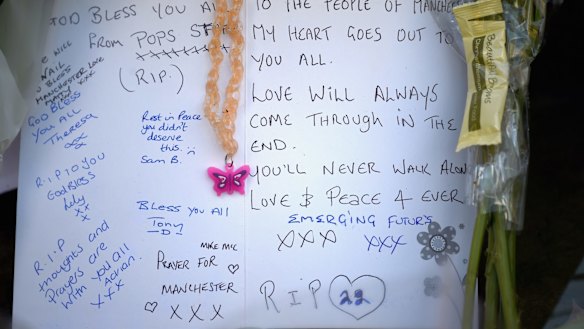 GOD BLESS YOU ALL
FROM POPS ST
(R.I.P.)
WILL
BLESS
MANCHESTER LOVE
XXX
GOD BLESS
YOU ALL
Theresa
R.I.P TO YOU
God Bless
XX
R.I.P
thoughts and
Prayers are
with you all
Adrian.
XXX
Rest in Peace
you didn't
deserve
this.
Sam B.
BLESS YOU ALL
Tony
D
MIKE MIC
PRAYER FOR
MANCHESTER
XXX
TO THE PEOPLE OF MANCHES
MY HEART GOES OUT TO
YOU ALL.
LOVE WILL ALWAYS
COME THROUGH IN THE
END.
YOU'LL NEVER WALK ALON
LOVE & PEACE 4 EVER
EMERGING FUTURS
XXX XXX
RIP 22